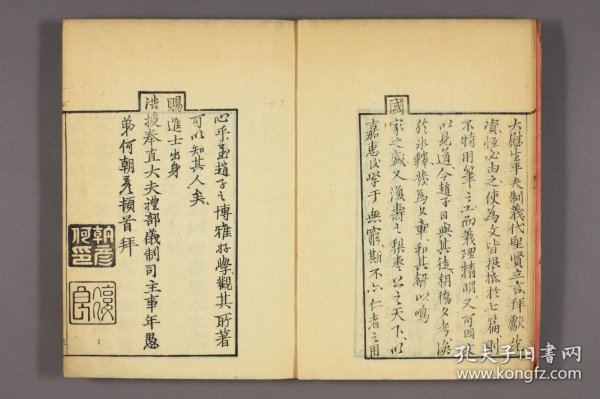 大慰生平夫制義代聖賢立言拜獻先
資恆必由之使為文皆根柢於七篇則
不特用筆之工而義理精明又可因
以見道今趙子日與其徒朝稽夕考渙
於冰釋發為文章和其聲以鳴
國家之盛又復壽之梨棗公之天下以
嘉惠後學于無窮斯不亦仁者之用
心乎並趙子之博雅好學觀其所著
可以知其人矣
賜進士出身
誥授奉直大夫禮部儀制司主事年愚
弟何朝彥頓首拜
朝彥
何印
孔夫子旧書网
www.kongfz.com